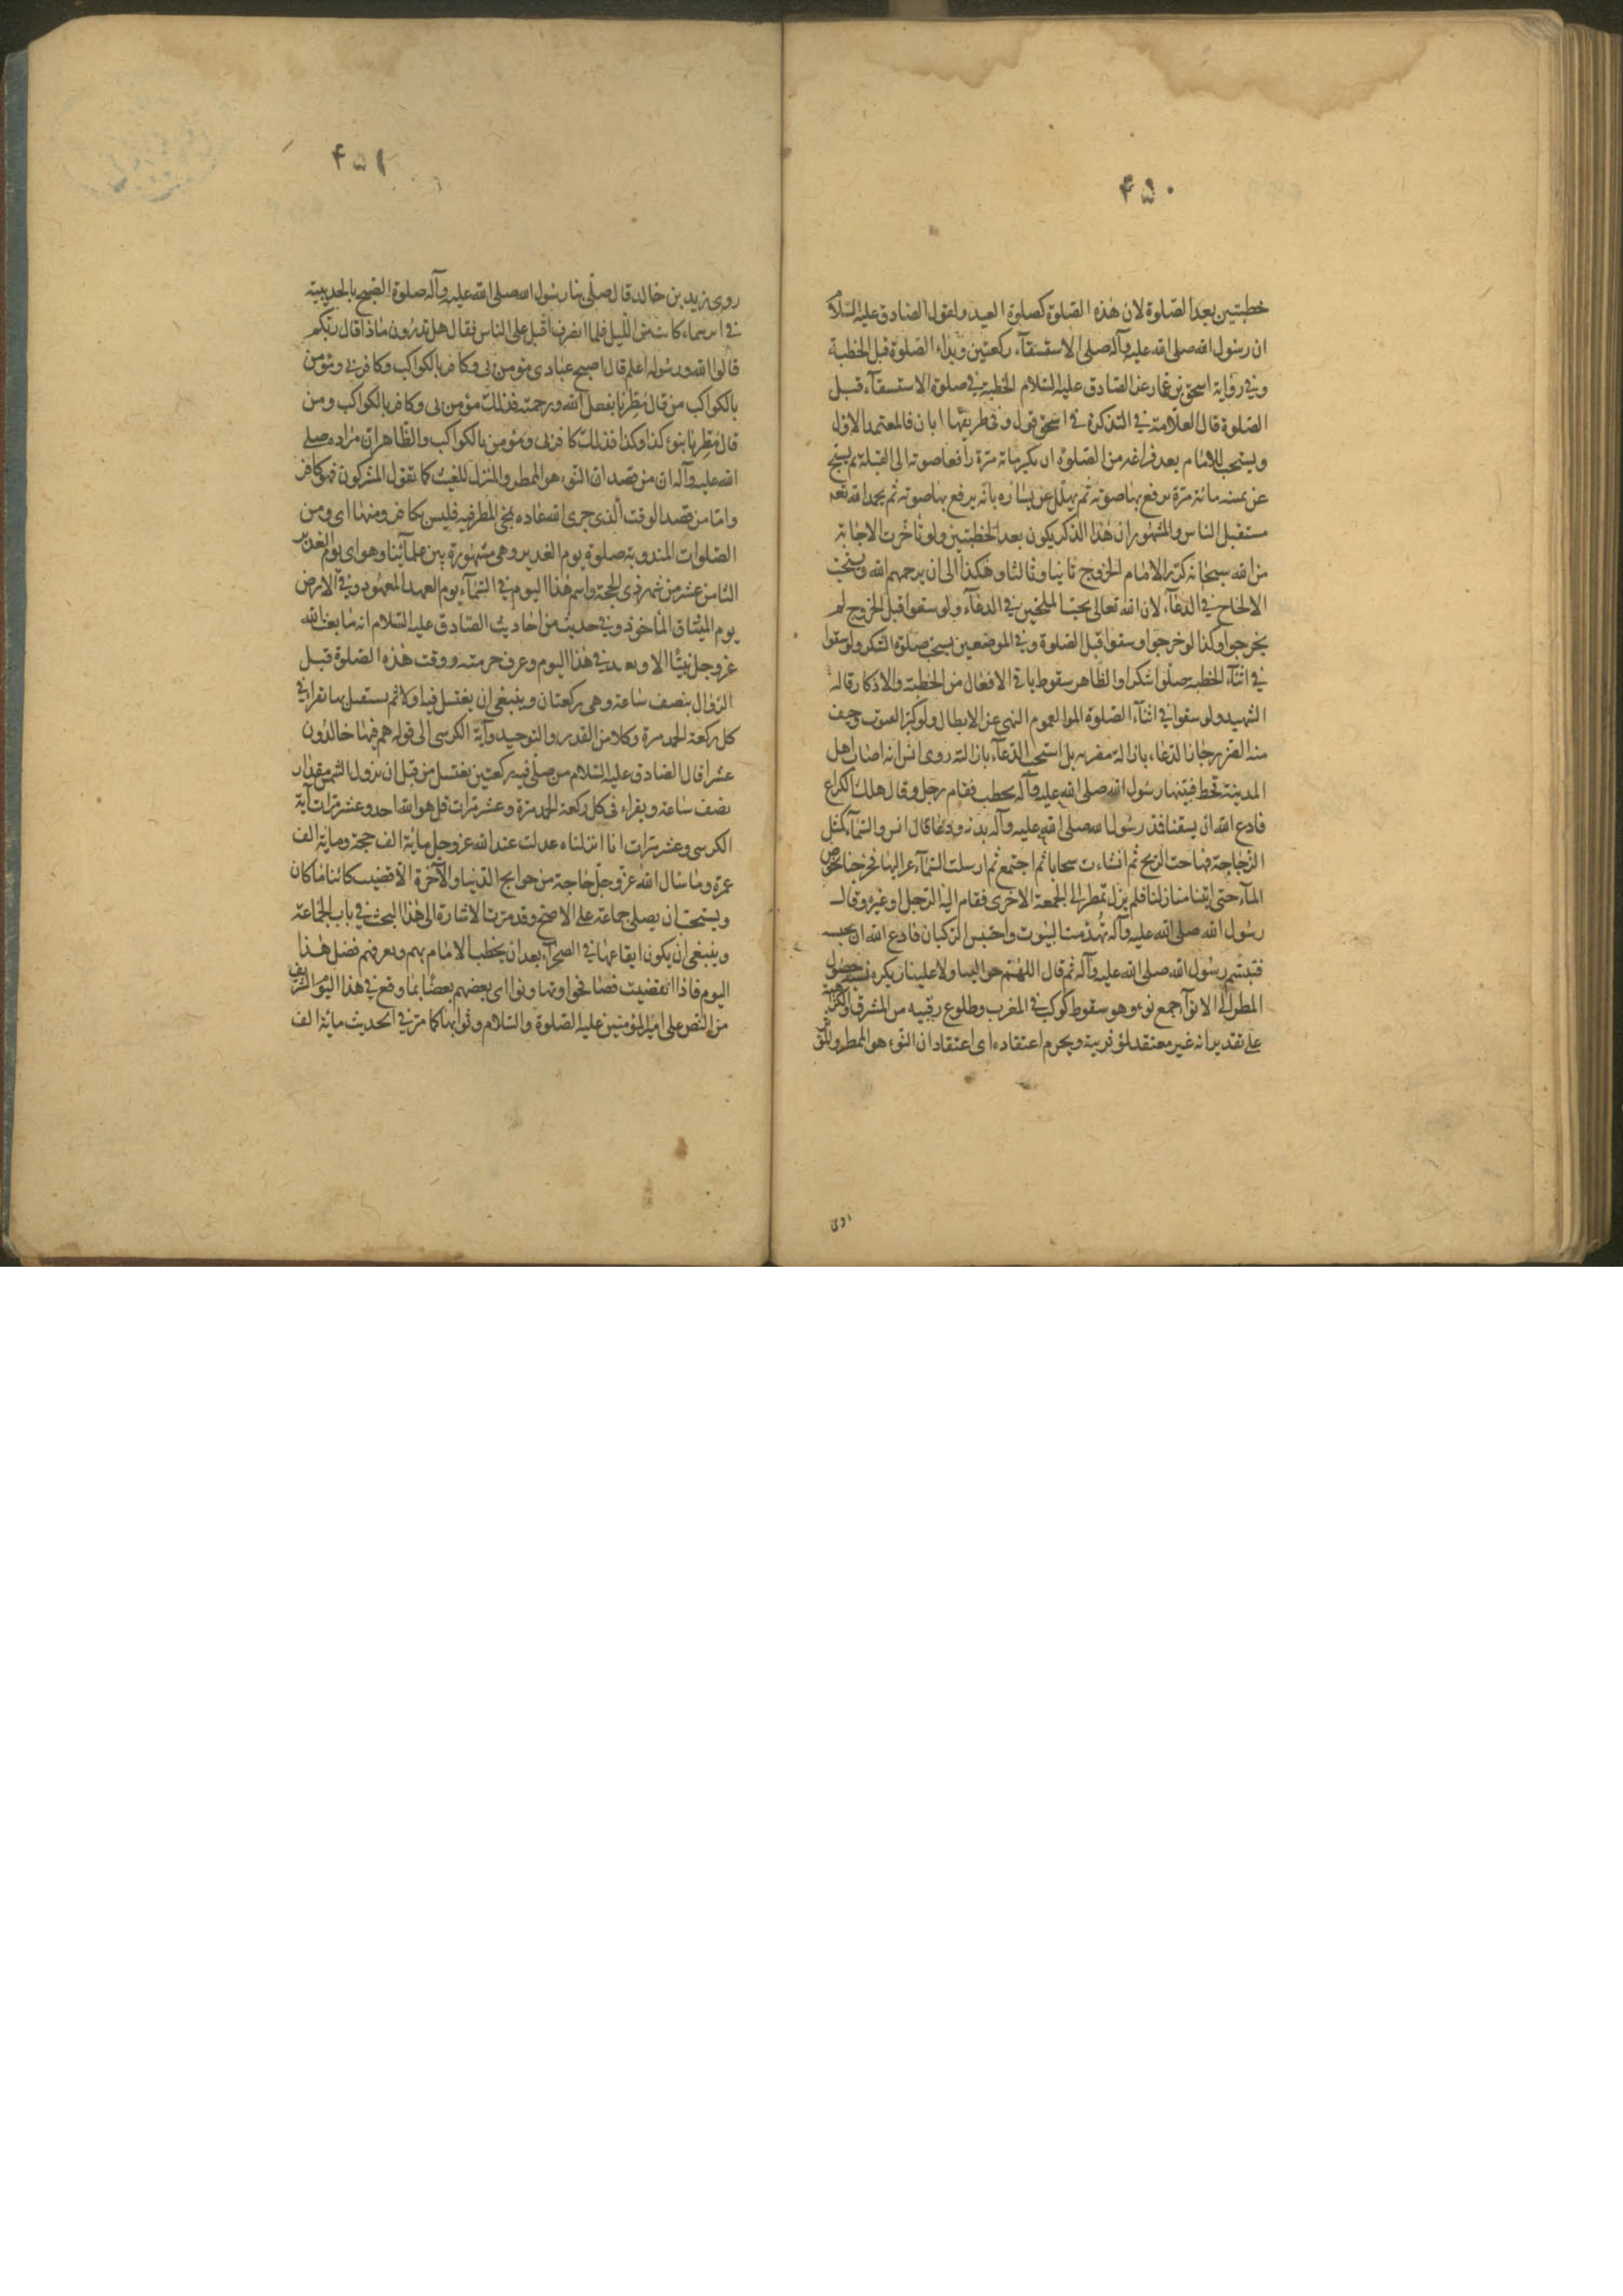 ۴۵۰
خطبتين بعد الصلوة لان هذه الصلوة كصلوة العيد ولقول الصادق عليه السلام
ان رسول الله صلى الله عليه وآله صلى الاستسقاء ركعتين وبدأ الصلوة قبل الخطبة
وفي رواية اسحق بن عمار عن الصادق عليه السلام الخطبة في صلوة الاستسقاء قبل
الصلوة قال العلامة في التذكرة في اسحق قول وفي طريقها ابان فالمعتمد الاول
ويستحب للامام بعد فراغه من الصلوة ان يكبر مائة مرة رافعا صوته الى القبلة ثم يسبح
عن يمينه مائة مرة يرفع بها صوته ثم يهلل عن يساره مائة يرفع بها صوته ثم يحمد الله تعه
مستقبل الناس والمشهور ان هذا الذكر يكون بعد الخطبتين ولو تأخرت الاجابة
من الله سبحانه كرر الامام الخروج ثانيا وثالثا وهكذا الى ان يرحمهم الله ويستحب
الالحاح في الدعاء لان الله تعالى يحب الملحين في الدعاء ولو سقوا قبل الخروج لم
يخرجوا وكذا لو خرجوا وسقوا قبل الصلوة وفي الموضعين يستحب صلوة الشكر ولو سقوا
في اثناء الخطبة صلوا شكرا والظاهر سقوط باقي الافعال من الخطبة والاذكار قاله
الشهيد ولو سقوا في اثناء الصلوة اتموا لعموم النهي عن الابطال ولو كثر الغيث وخيف
منه الضرر جاز الدعاء بازالة مضرته بل استحب الدعاء بازالته روى انس انه اصاب اهل
المدينة قحط فبينما رسول الله صلى الله عليه وآله يخطب فقام رجل وقال هلك الكراع
فادع الله ان يسقينا فمد رسول الله صلى الله عليه وآله يديه ودعا قال انس والسماء كمثل
الزجاجة فهاجت الريح ثم انشاءت سحابا ثم اجتمع ثم ارسلت السماء عزاليها فخرجنا نخوض
الماء حتى اتينا منازلنا فلم يزل تمطر الى الجمعة الاخرى فقام اليه الرجل او غيره وقال
رسول الله صلى الله عليه وآله تهدمت البيوت واحتبس الركبان فادع الله ان يحبسه
فتبسم رسول الله صلى الله عليه وآله ثم قال اللهم حوالينا ولا علينا ويكره نسبة حصول
المطر الى الانواء جمع نوء وهو سقوط كوكب في المغرب وطلوع رقيبه من المشرق والكراهية
على تقدير انه غير معتقد لمؤثريته ويحرم اعتقاده اى اعتقاد ان النوء هو الممطر والمؤثر
روى
۴۵۱
روى زيد بن خالد قال صلى بنا رسول الله صلى الله عليه وآله صلوة الصبح بالحديبية
في اثر سماء كانت من الليل فلما انصرف اقبل على الناس فقال هل تدرون ماذا قال ربكم
قالوا الله ورسوله اعلم قال اصبح عبادى مؤمن بى وكافر بالكواكب وكافر بى ومؤمن
بالكواكب من قال مطرنا بفضل الله ورحمته فذلك مؤمن بى وكافر بالكواكب ومن
قال مطرنا بنوء كذا وكذا فذلك كافر بى ومؤمن بالكواكب والظاهر ان مراده صلى
الله عليه وآله ان من قصد ان النوء هو الممطر والمنزل للغيث كما تقول المشركون فهو كافر
واما من قصد الوقت الذى جرى الله عاده بمجئ المطر فيه فليس بكافر ومنها اى ومن
الصلوات المندوبة صلوة يوم الغدير وهى مشهورة بين علمائنا وهو اى يوم الغدير
الثامن عشر من شهر ذى الحجة واسم هذا اليوم في السماء يوم العهد المعهود وفي الارض
يوم الميثاق المأخوذ وفي حديث من احاديث الصادق عليه السلام انه ما بعث الله
عز وجل نبيا الا وتعيد في هذا اليوم وعرف حرمته ووقت هذه الصلوة قبل
الزوال بنصف ساعة وهى ركعتان وينبغى ان يغتسل فيه اولا ثم يستقبل بها تقرا في
كل ركعة الحمد مرة وكلا من القدر والتوحيد وآية الكرسى الى قوله هم فيها خالدون
عشرا قال الصادق عليه السلام من صلى فيه ركعتين يغتسل من قبل ان يزول الشمس مقدار
نصف ساعة ويقراء في كل ركعة الحمد مرة وعشر مرات قل هو الله احد وعشر مرات آية
الكرسى وعشر مرات انا انزلناه عدلت عند الله عز وجل مائة الف حجة ومائة الف
عمرة وما سال الله عز وجل حاجة من حوايج الدنيا والآخرة الا قضيت كائنا ما كان
ويستحب ان يصلى جماعة على الاصح وقد مرت الاشارة الى هذا البحث في باب الجماعة
وينبغى ان يكون ايقاعها في الصحراء بعد ان يخطب الامام بهم ويعرفهم فضل هذا
اليوم فاذا انقضيت فصافحوا وتهاونوا اى بعضهم بعضا بما وقع في هذا اليوم الشريف
من النص على امير المؤمنين عليه الصلوة والسلام وثوابها كما مر في الحديث مائة الف